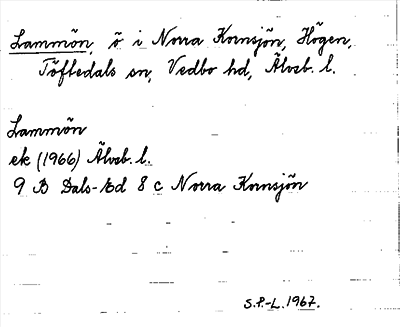 Lammön, ö i Norra Kornsjön, Högen,
Töftedals sn, Vedbo hd, Älvsb. l.
Lammön
ek (1966) Älvsb. l.
9 B Dals-Ed 8 c Norra Kornsjön
S.P.-L. 1967.